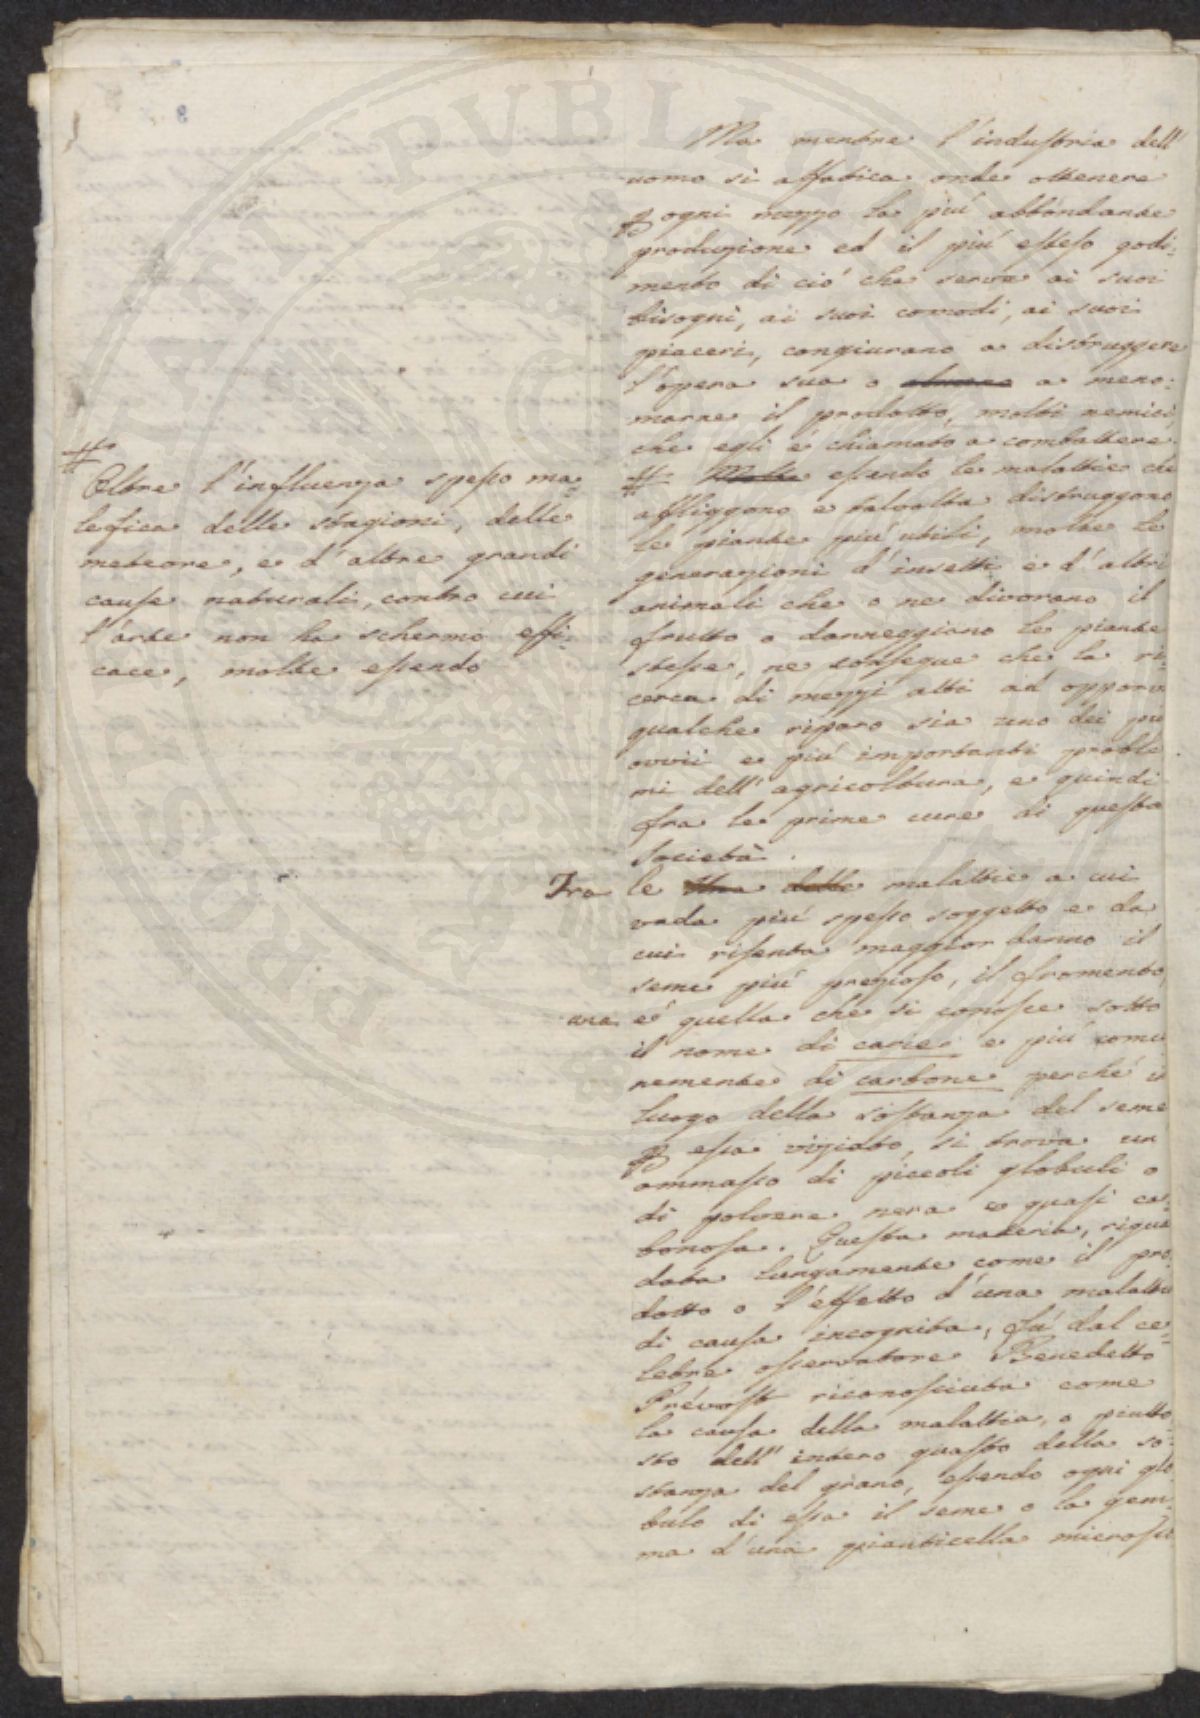 Ma mentre l'industria dell'
uomo si affatica onde ottenere
ogni mezzo la più abbondante
produzione ed il più esteso godi:
mento di ciò che serva ai suoi
bisogni, ai suoi comodi, ai suoi
piaceri, congiurano a distruggere
l'opera sua o a meno:
marne il prodotto, molti nemici,
che egli è chiamato a combattere.
# Molte essendo le malattie che
affliggono e talvolta distruggono
le piante più utili, molte le
generazioni d'insetti e d'altri
animali che o ne divorano il
frutto o danneggiano le piante
stesse, ne consegue che la ri:
cerca di mezzi atti ad opporvi
qualche riparo sia uno dei più
ovvii e più importanti proble
mi dell'agricoltura, e quindi
fra le prime cure di questa
società.
#
Oltre l'influenza spesso ma:
lefica delle stagioni, delle
meteore, e d'altre grandi
cause naturali, contro cui
l'arte non ha schermo effi:
cace, molte essendo
Fra le Una delle malattie a cui
vada più spesso soggetto e da
cui risenta maggior danno il
seme più prezioso, il fromento,
una è quella che si conosce sotto
il nome di carie e più comu
nemente di carbone perchè in
luogo della sostanza del seme
essa viziato, si trova un
ammasso di piccoli globuli o
di polvere nera e quasi car:
bonosa. Questa materia, rigua
data lungamente come il pro:
dotto o l'effetto d'una malattia
di causa incognita, fù dal ce:
lebre osservatore Benedetto
Prévost riconosciuta come
la causa della malattia, o piutto:
sto dell'intero guasto della so:
stanza del grano, essendo ogni glo
bulo di essa il seme o la gem:
ma d'una pianticella microsco